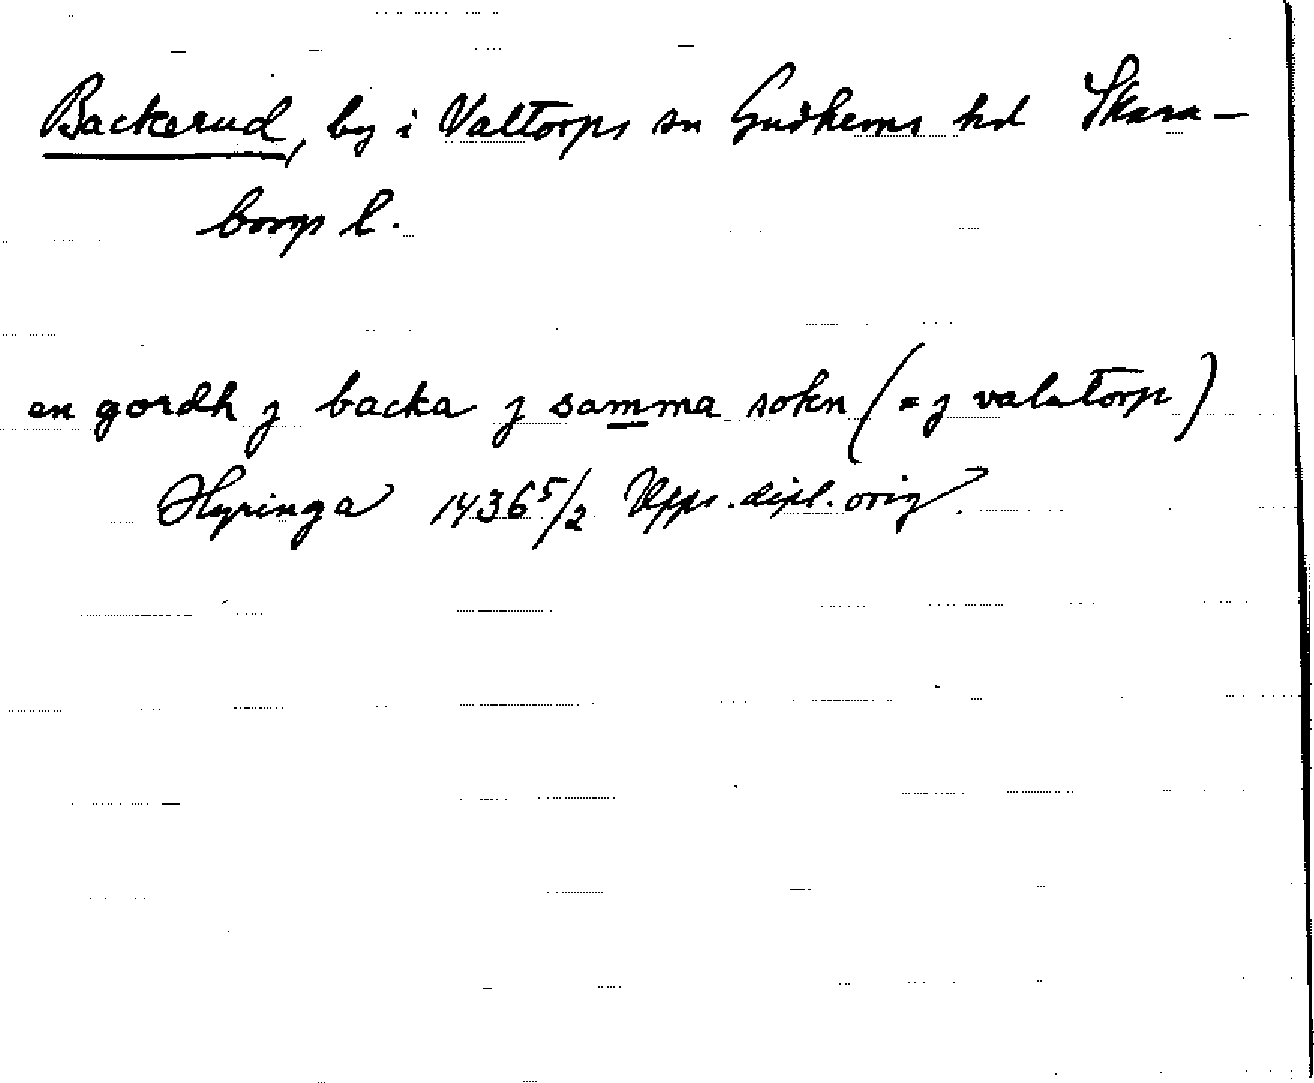 Backerud, by i Valtorps sn Gudhems hd Skara-
borgs l.
en gordh j backa j samma sokn (= j valatorp)
Hyringa 1436 5/2 Upps. dipl. orig.